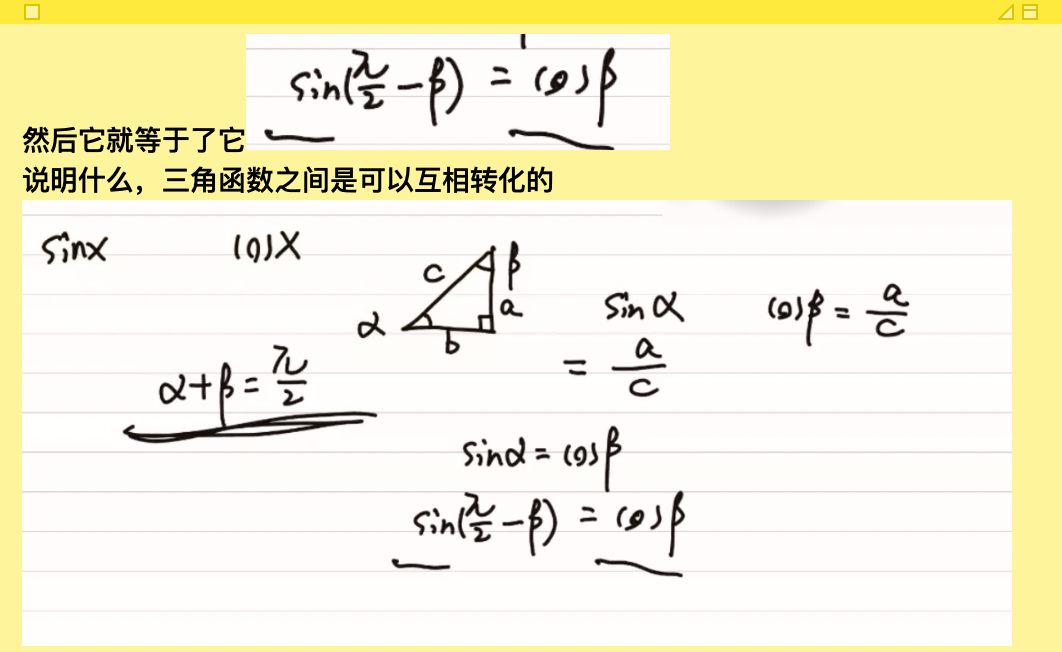 sin(π/2 - β) = cosβ
然后它就等于了它
说明什么，三角函数之间是可以互相转化的
sinx cosx
c β
α a
b
sinα cosβ = a/c
= a/c
α+β = π/2
sinα = cosβ
sin(π/2 - β) = cosβ